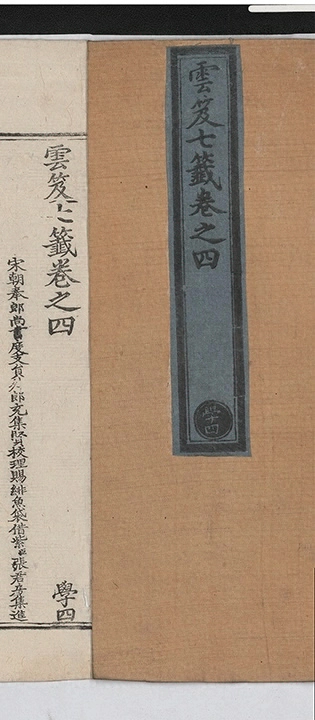 雲笈七籤卷之四
學十四
雲笈七籤卷之四
學四
宋朝奉郎尚書度支員外郎充集賢校理賜緋魚袋借紫臣張君房集進